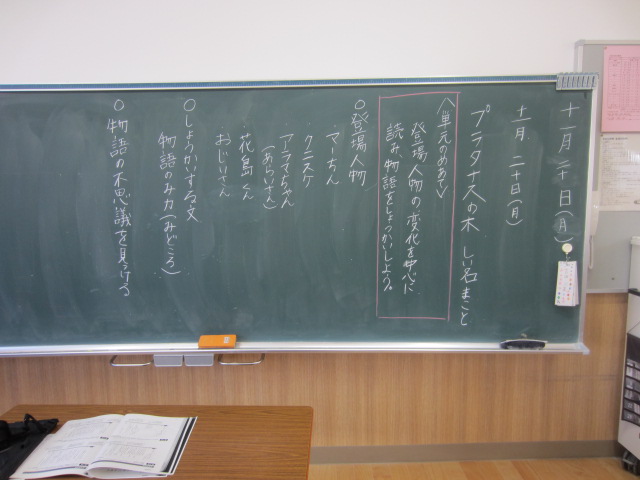 十一月二十日(月)
十一月二十日(月)
プラタナスの木 しい名まこと
〈単元のめあて〉
登場人物の変化を中心に
読み、物語をしょうかいしよう。
○登場人物
マーちん
クニスケ
アラマちゃん
(あらいさん)
花島くん
おじいさん
○しょうかいする文
物語のみ力(みどころ)
○物語の不思議を見つける